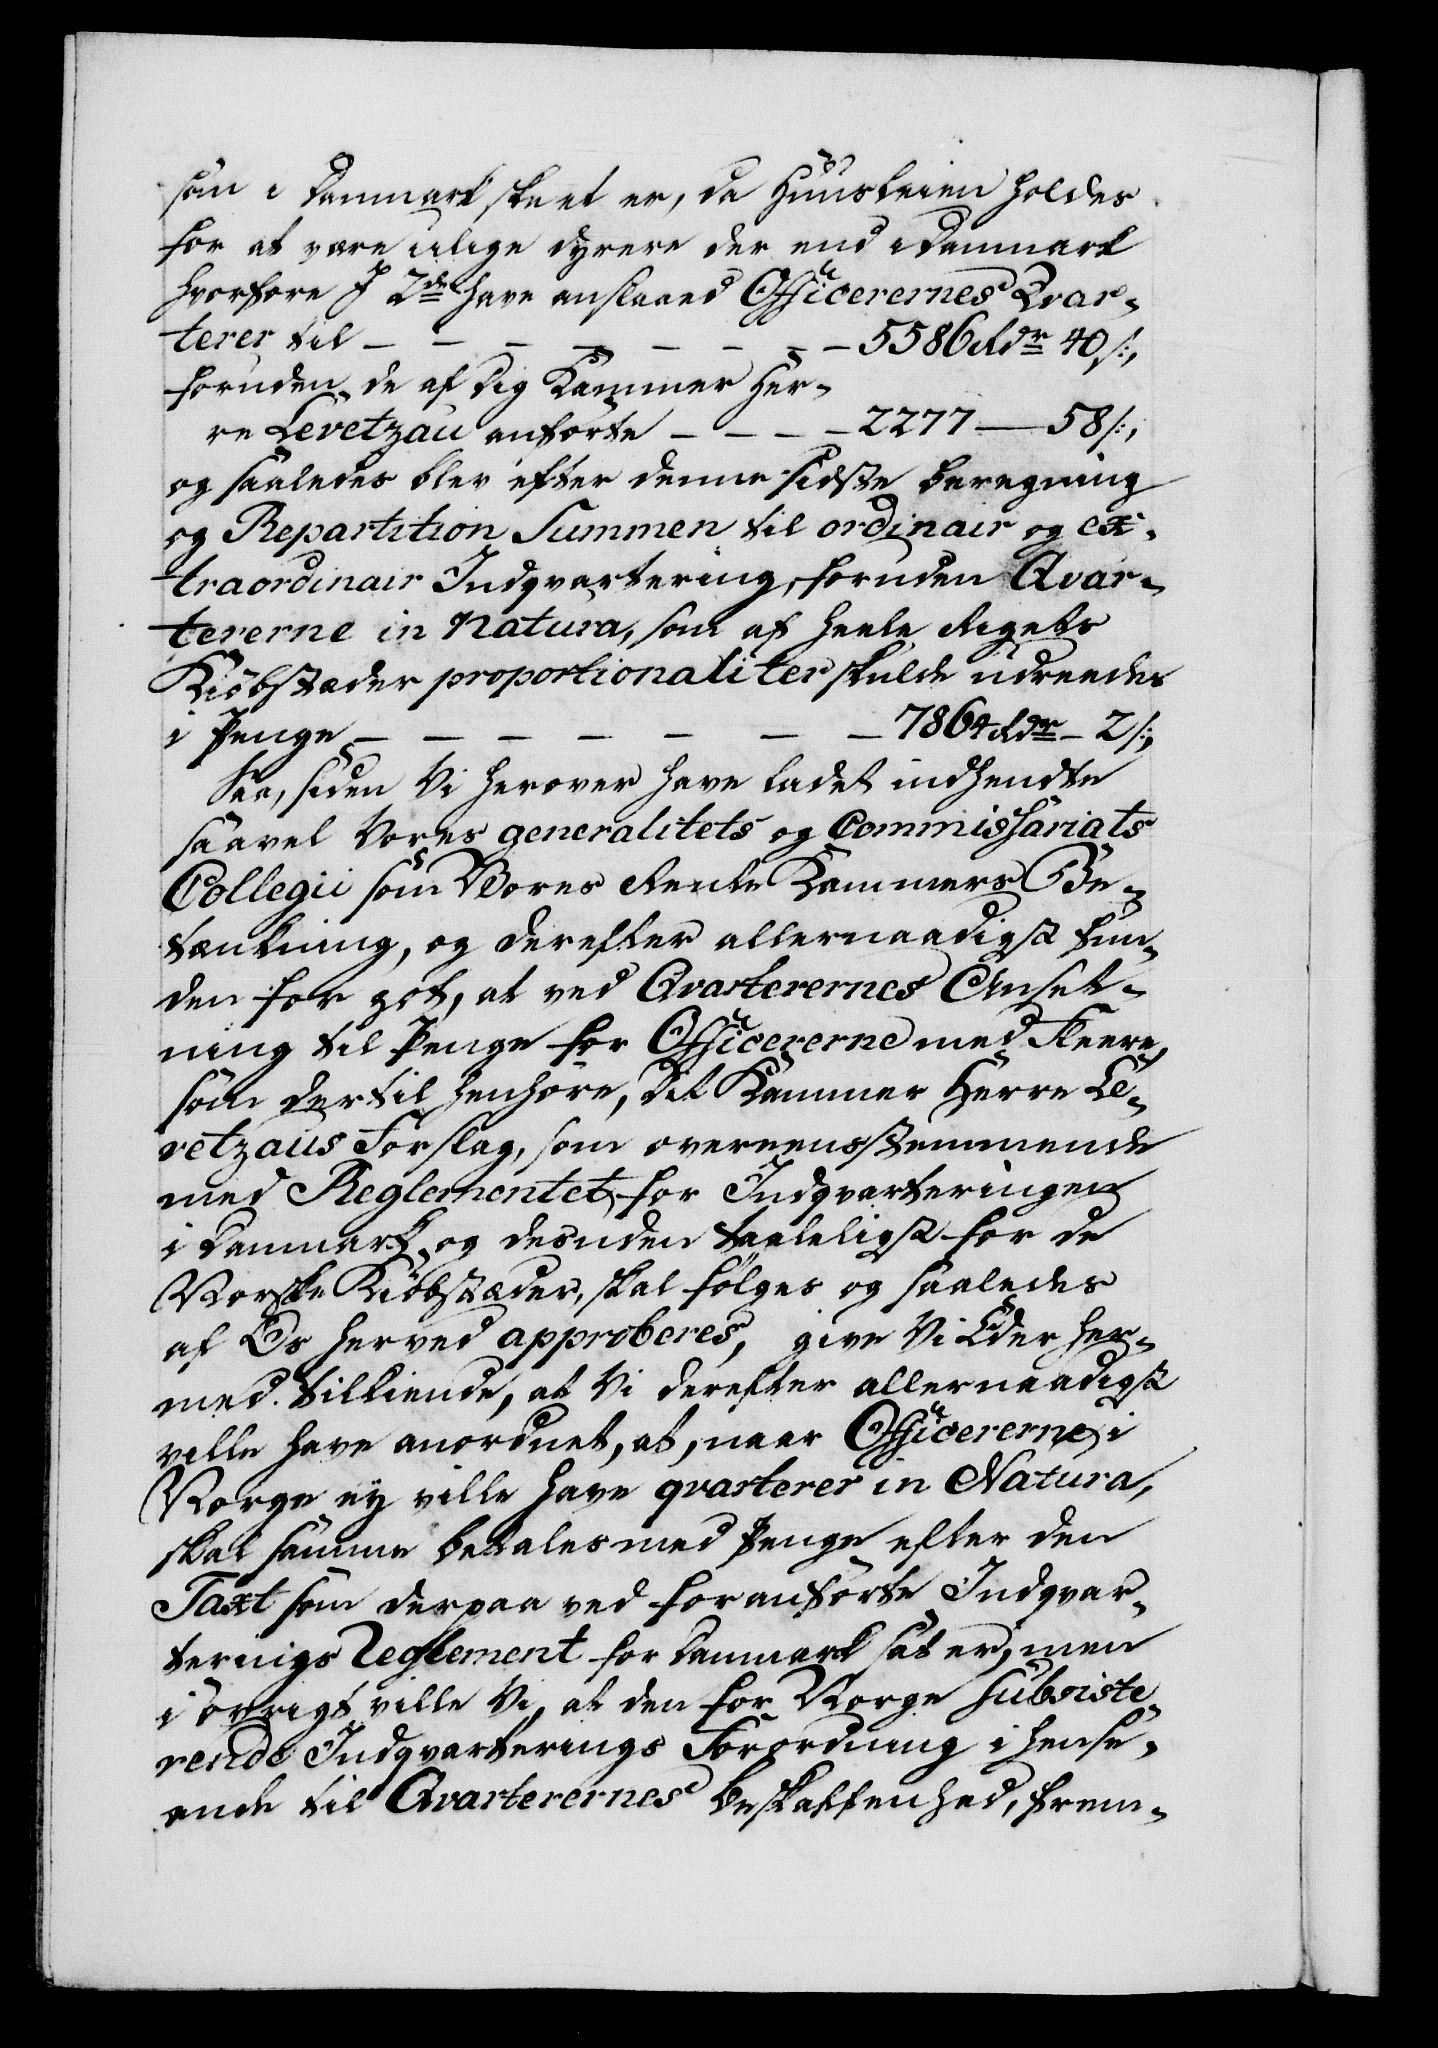 som i Danmark skeet er, da Huusleien holdes
for at være ulige dyrere der end i Danmark
hvorfore I 2de have anslaaed Officerernes Qvar-
terer til – – – – – – – 5586 Rdr 40 s:,
foruden de af Dig Kammer Her-
re Levetzau anførte – – – – 2277 — 58 s:,
og saaledes blev efter denne sidste beregning
og Repartition Summen til ordinair og ex-
traordinair Indqvartering, foruden Qvar-
tererne in Natura, som af heele Rigets
Kiöbstæder proportionaliter skulde udreedes
i Penge – – – – – – – 7864 Rdr – 2 s:,
Saa, siden Vi herover have ladet indhendte
saavel Vores generalitets og Commissariats
Collegii som Vores Rente Kammers Be-
tænkning, og derefter allernaadigst fun-
den for got, at ved Qvarterernes Anset-
ning til Penge for Officererne med Fleere,
som dertil henhöre, dit Kammer Herre Le-
vetzaus Forslag, som overeensstemmende
med Reglementet for Indqvarteringen
i Danmark og desuden taaleligst for de
Norske Kiöbstæder, skal fölges og saaledes
af Os herved approberes, give Vi Eder her-
med tilkiende, at Vi derefter allernaadigst
ville have anordnet, at, naar Officererne i
Norge ey ville have qvarterer in Natura,
skal samme betales med Penge efter den
Taxt som derpaa ved foranførte Indqvar-
ternigs Reglement for Danmark sat er, men
i övrigt ville Vi, at den for Norge subsiste-
rende Indqvarterings Forordning i hense-
ende til Qvarterernes beskaffenhed, frem-